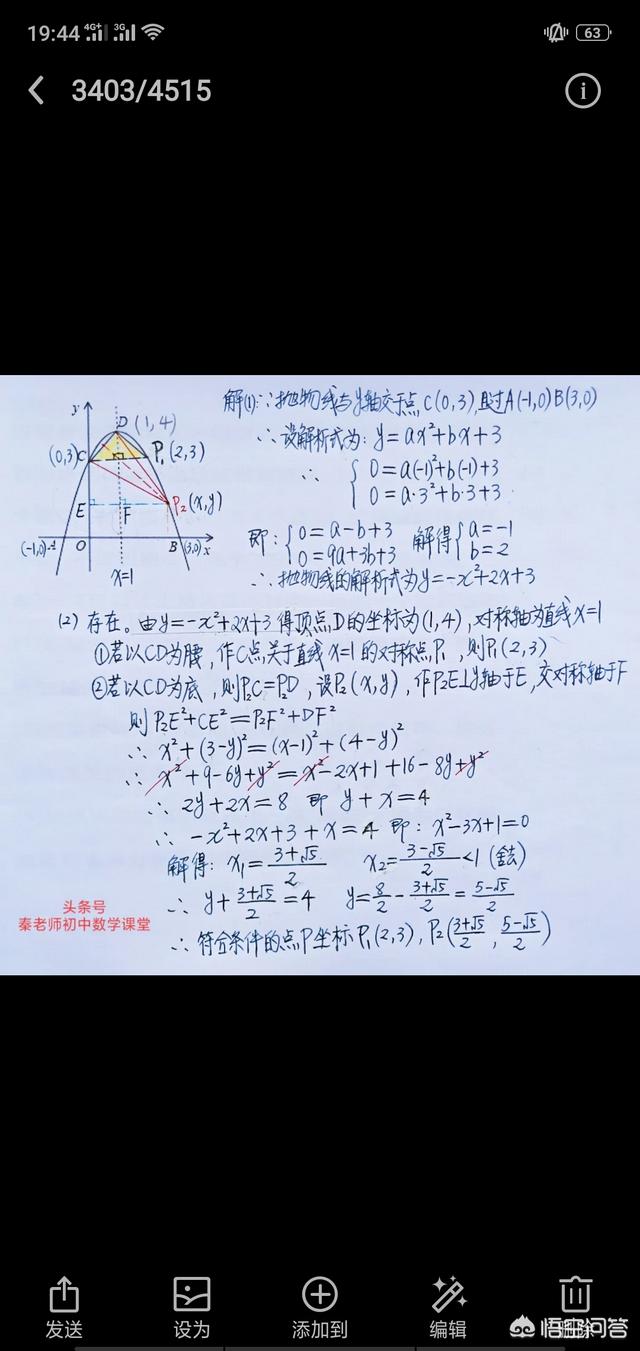 19:44 4G+ 3G 63
3403/4515
y
D(1,4)
(0,3)C P₁(2,3)
E F P₂(x,y)
(-1,0) O B(3,0) x
x=1
解(1)∵抛物线与y轴交于点C(0,3)且过A(-1,0)B(3,0)
∴设解析式为:y=ax²+bx+3
∴ {0=a(-1)²+b(-1)+3
0=a·3²+b·3+3
即:{0=a-b+3 解得{a=-1
0=9a+3b+3 b=2
∴抛物线的解析式为y=-x²+2x+3
(2)存在。由y=-x²+2x+3得顶点D的坐标为(1,4),对称轴为直线x=1
①若以CD为腰,作C点关于直线x=1的对称点P₁,则P₁(2,3)
②若以CD为底,则P₂C=P₂D,设P₂(x,y),作P₂E⊥y轴于E,交对称轴于F
则P₂E²+CE²=P₂F²+DF²
∴x²+(3-y)²=(x-1)²+(4-y)²
∴x²+9-6y+y²=x²-2x+1+16-8y+y²
∴2y+2x=8 即 y+x=4
∴-x²+2x+3+x=4 即:x²-3x+1=0
解得:x₁=(3+√5)/2 x₂=(3-√5)/2<1(舍去)
∴y+(3+√5)/2=4 y=8/2-(3+√5)/2=(5-√5)/2
∴符合条件的点P坐标P₁(2,3),P₂((3+√5)/2,(5-√5)/2)
头条号
秦老师初中数学课堂
发送 设为 添加到 编辑 删除
悟空问答